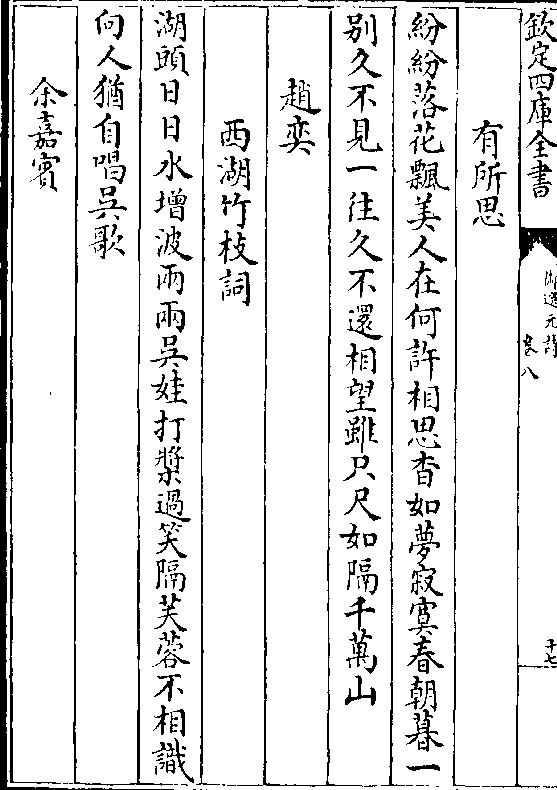 欽定四庫全書
御選元詩
卷八
十七
有所思
紛紛落花飄美人在何許相思杳如夢寂寞春朝暮一
别久不見一往久不還相望雖只尺如隔千萬山
趙奕
西湖竹枝詞
湖頭日日水增波兩兩吳娃打槳過笑隔芙蓉不相識
向人猶自唱吳歌
余嘉賓